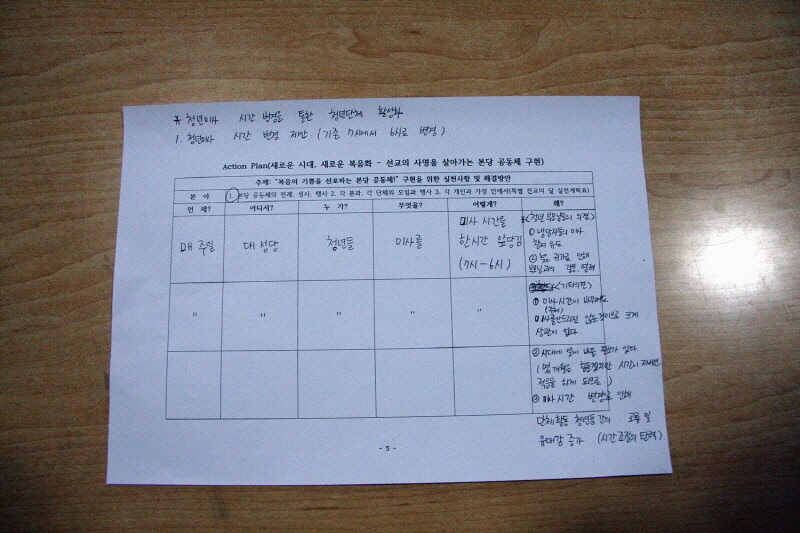 ※ 청년미사 시간 변경을 통한 청년단체 활성화
1. 청년미사 시간 변경 제안 (기존 7시에서 6시로 변경)
Action Plan(새로운 시대, 새로운 복음화 - 선교의 사명을 살아가는 본당 공동체 구현)
주제: "복음의 기쁨을 선포하는 본당 공동체!" 구현을 위한 실천사항 및 해결방안
분 야 1. 본당 공동체의 전례, 성사, 행사 2. 각 분과, 각 단체의 모임과 행사 3. 각 개인과 가정 안에서(특별 전교의 달 실천계획표)
언 제? 어디서? 누 가? 무엇을? 어떻게? 왜?
매 주일 대 성당 청년들 미사를
미사 시간을
한시간 앞당김
(7시-6시)
*(청년 의견)
① 냉담자들의 미사
참여 유도
② 늦은 귀가로 인해
부모님과의 갈등,
" " " " "
(기타의견)
① 미사시간이 바뀌어도
미사를 안드리진 않는 것이므로 크게
상관이 없다.
② 시대에 맞게 바뀔 필요가 있다
(몇 개월은 힘들겠지만 시간이 지나면
적응을 하게 되므로)
③ 미사 시간 변경으로 인해
단체활동 청년들간의 교류 및
유대감 증가 (시간 조정의 탄력)
- 5 -